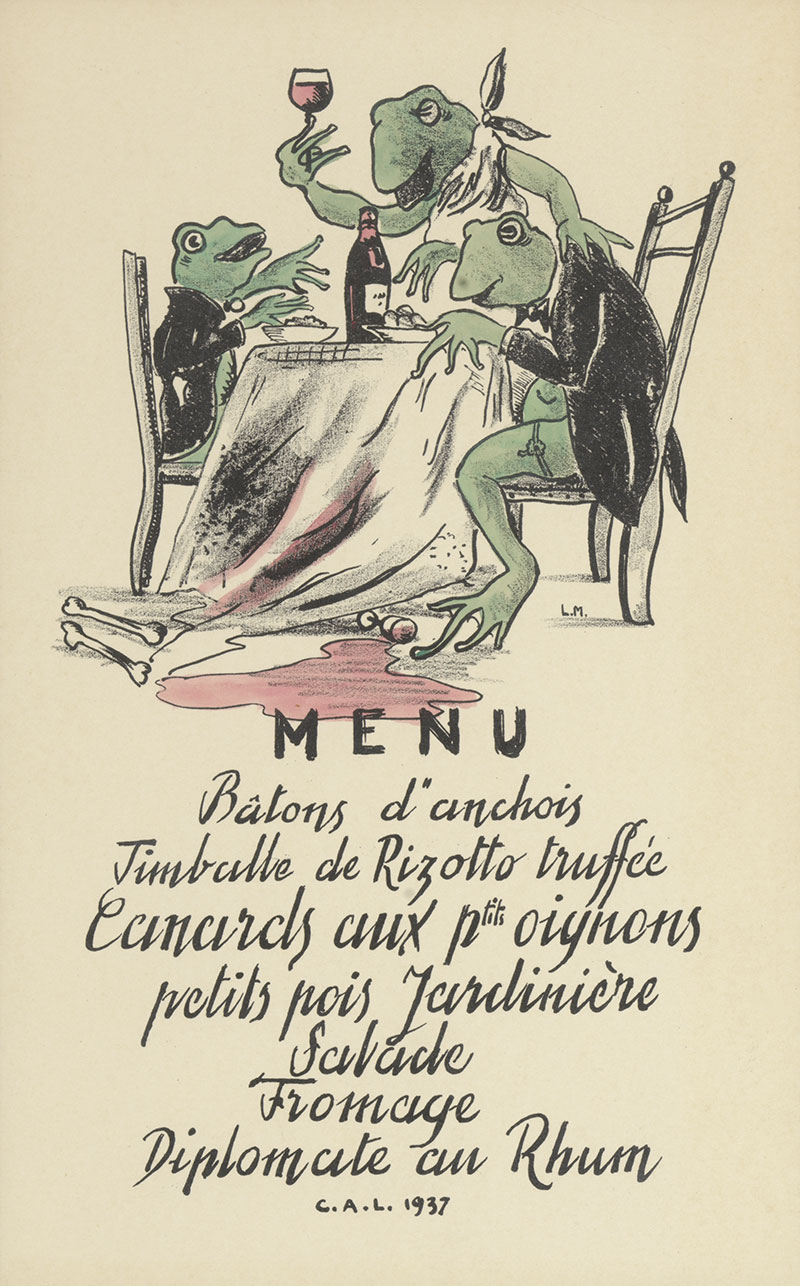 L.M.
MENU
Bâtons d"anchois
Timballe de Rizotto truffée
Canards aux ptits oignons
petits pois Jardinière
Salade
Fromage
Diplomate au Rhum
C.A.L. 1937